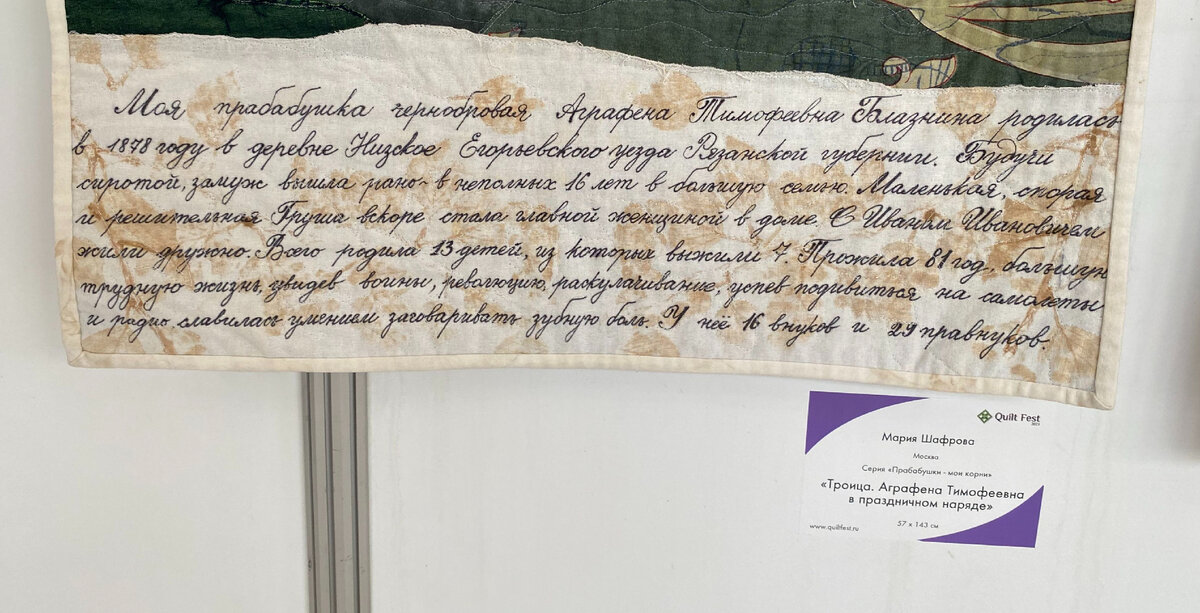 Моя прабабушка чернобровая Аграфена Тимофеевна Блазнина родилась
в 1878 году в деревне Низкое Егорьевского уезда Рязанской губернии. Будучи
сиротой, замуж вышла рано - в неполных 16 лет в большую семью. Маленькая, спорая
и решительная Груша вскоре стала главной женщиной в доме. С Иваном Ивановичем
жили дружно. Всего родила 13 детей, из которых выжили 7. Прожила 81 год, большую
трудную жизнь, увидев войны, революцию, раскулачивание, успев подивиться на самолеты
и радио. славилась умением заговаривать зубную боль. У неё 16 внуков и 29 правнуков.
Quilt Fest
2023
Мария Шафрова
Москва
Серия «Прабабушки - мои корни»
«Троица. Аграфена Тимофеевна
в праздничном наряде»
www.quiltfest.ru
57 х 143 см